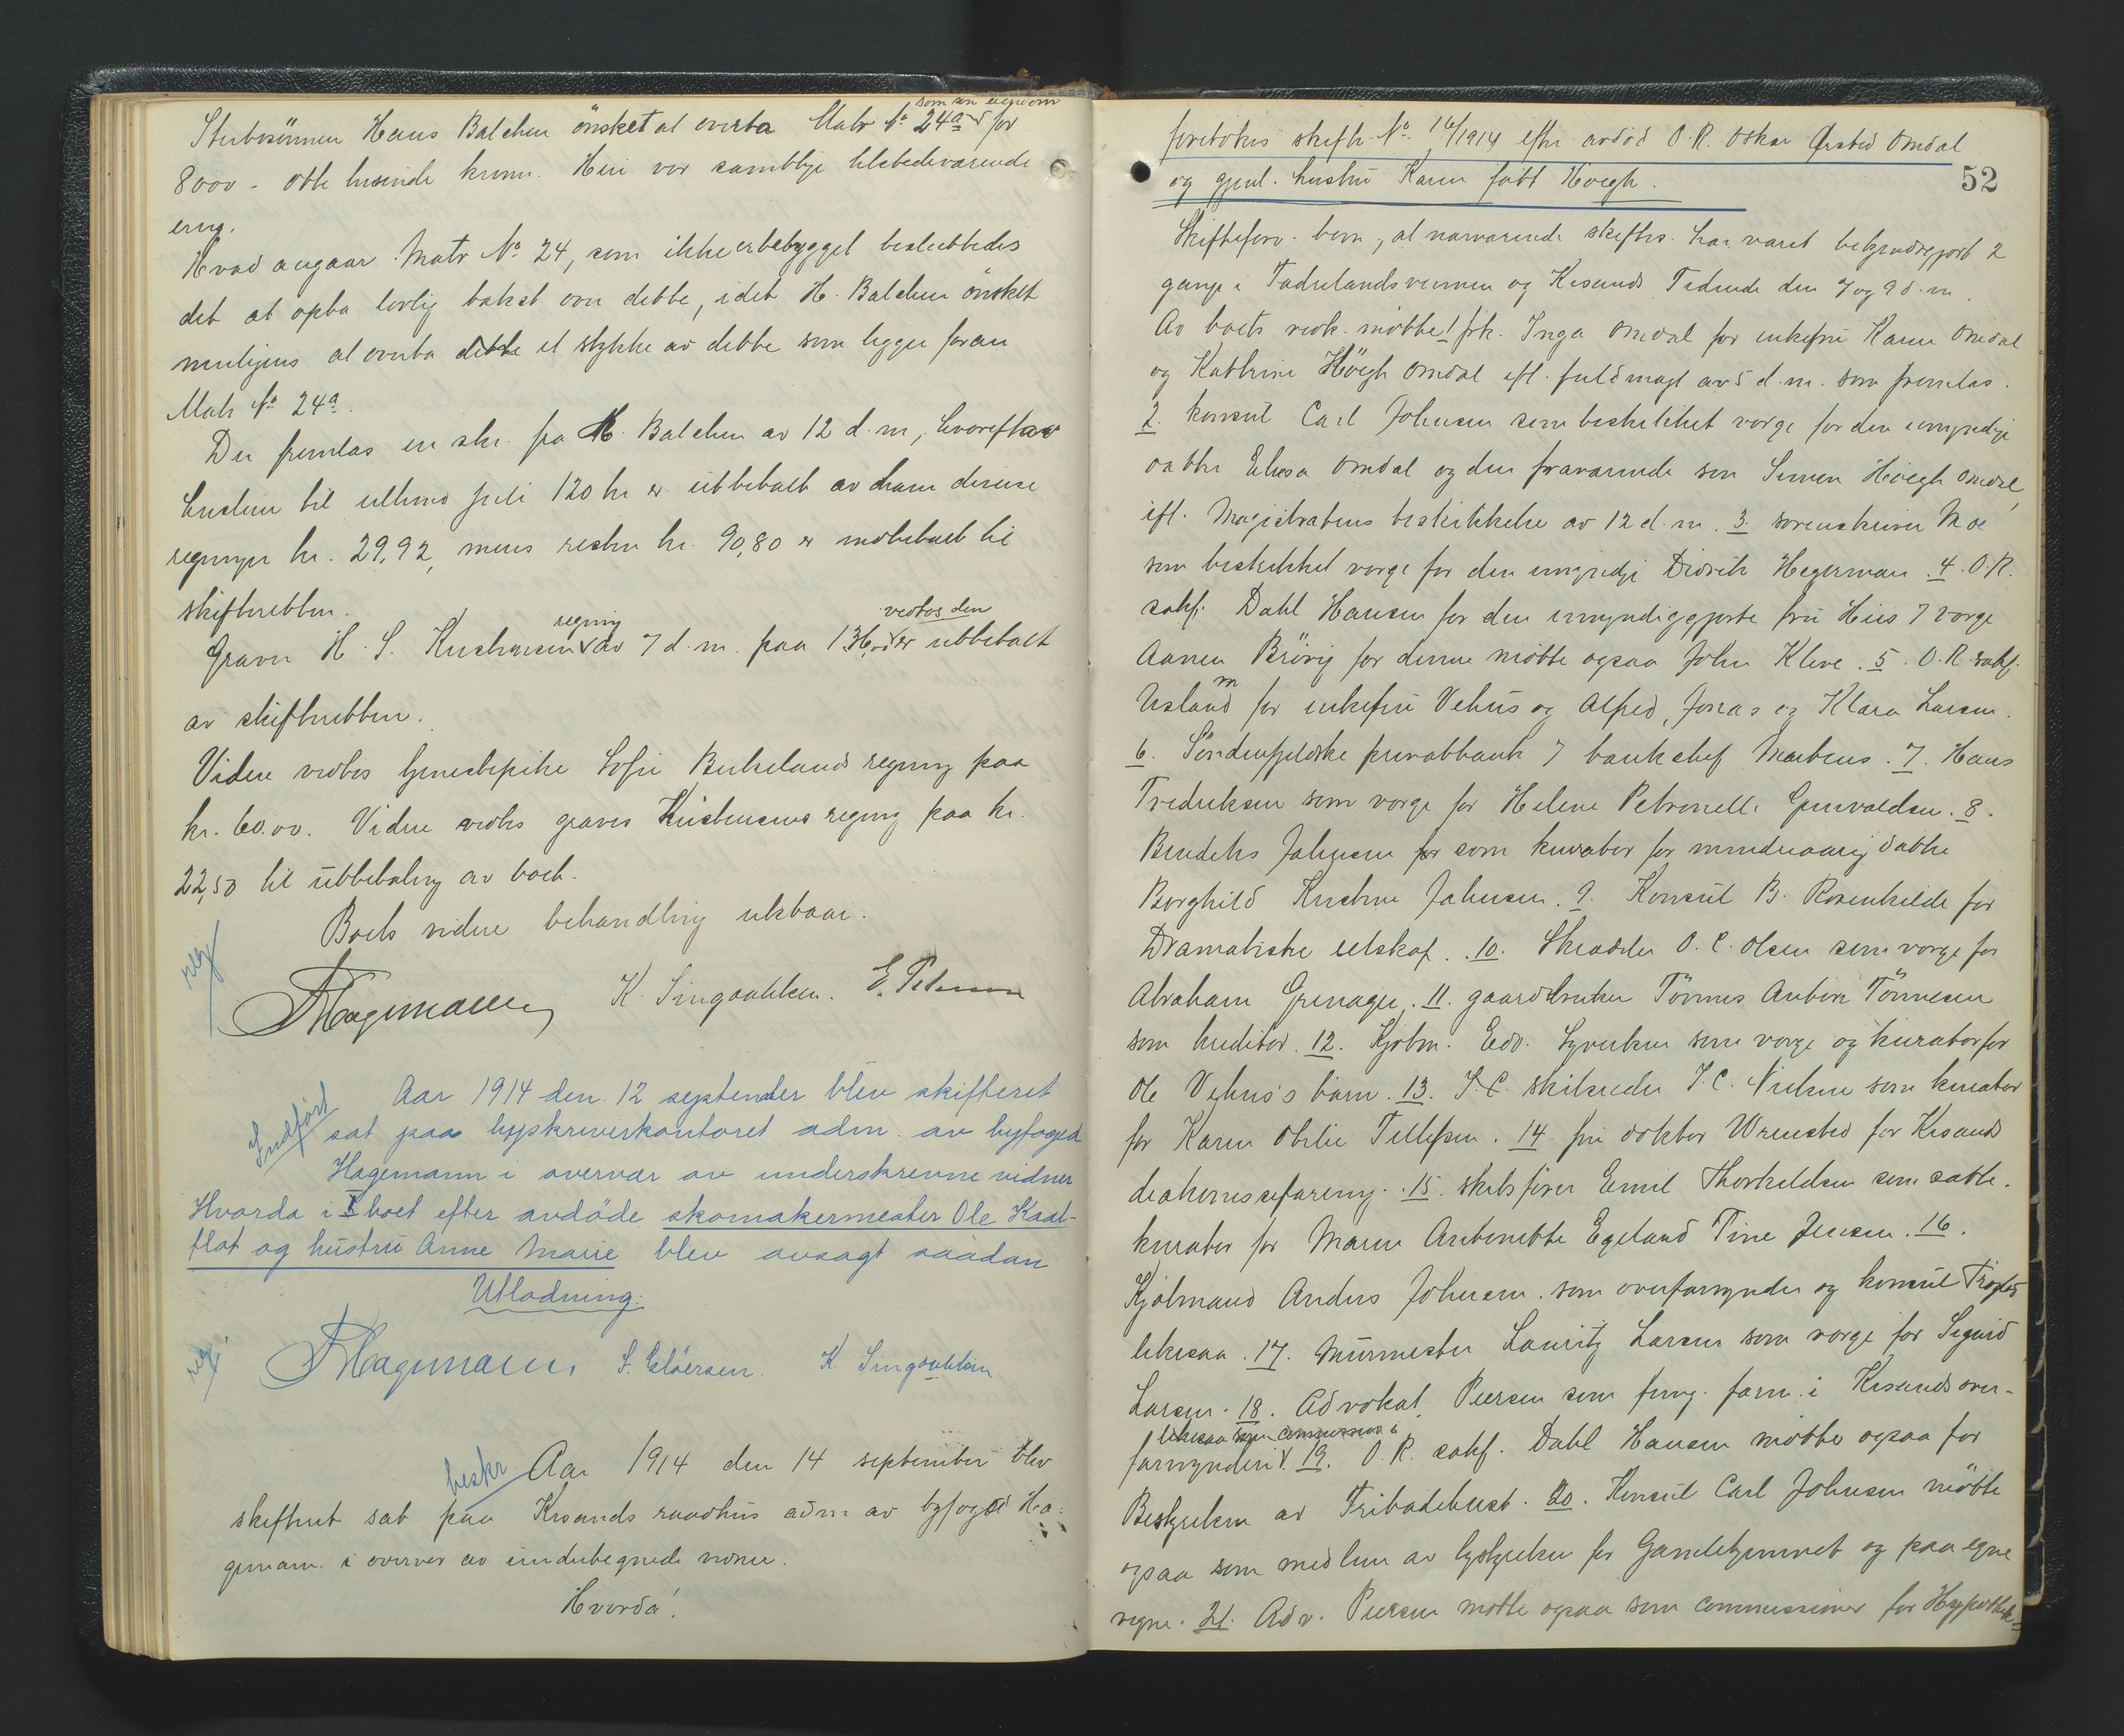 som sin eiendom
Stubesönnen Hans Balchen önsket at overta Matr No 24a for
8000 - otte tusinde kroner. Heri var samtlige tilstedeværende
enig.
Hvad angaar Matr No 24, som ikke er bebygget besluttedes
det at opta lovlig takst over dette, idet H. Balchen önsket
muligens at overta dette et stykke av dette som ligger foran
Matr No 24a.
Der fremlas en skr. fra H. Balchen av 12 d.m, hvorefter
husleie til ultimo juli 120 kr er utbetalt av ham diverse
regninger kr. 29,92, mens resten kr. 90,80 er indbetalt til
skifteretten.
regning vedtos den
Graver H. S. Kristensen av 7 d.m. paa 136,00 er utbetalt
av skifteretten.
Videre vedtos tjenestepike Sofie Birkelands regning paa
kr. 60.00. Videre vedtos graver Kristensens regning paa kr.
22,50 til utbetaling av boet.
Boets videre behandling utstaar.
reg
Hagemann K. Singdahlsen. E. Petersen
Aar 1914 den 12 september blev skifteret
Indført sat paa byskriverkontoret adm. av byfoged
Hagemann i overvær av underskrevne vidner
Hvorda i boet efter avdöde skomakermester Ole Kaat-
flot og hustru Anne Marie blev avsagt saadan
Utlodning:
reg
Hagemann S. Eldersen. K. Singdahlsen
beskr. Aar 1914 den 14 september blev
skifteret sat paa Krsands raadhus adm av byfoged Ha-
gemann i overvær av undertegnede vidner.
Hvorda!
foretokes skifte No 16/1914 efter avdöd O.R. Oskar Ørsted Omdal
og gjenl. hustru Karen født Höegh.
52
Skifteforv. bem, at nærværende skiftes. har været bekjendtgjort 2
gange i Fædrelandsvennen og Krsands Tidende den 7 og 9 d.m.
Av boets vedk. møtte 1 frk. Inga Omdal for enkefru Karen Omdal
og Kathrine Höegh Omdal efl. fuldmagt av 5 d.m. som fremlas.
2. konsul Carl Johnsen som beskikket verge for den umyndige
datter Elisa Omdal og den fraværende søn Simen Höegh Omdal,
ifl. Magistratens beskikkelse av 12 d.m. 3. sorenskriver Moe
som beskikket verge for den umyndige Didrik Hegerman. 4. O.R.
sakf. Dahl Hansen for den umyndiggjorte fru Hiis 7 verge
Aanen Brövig for denne møtte ogsaa John Kleve. 5. O.R. sakf.
Usland for enkefru Vehus og Alfred, Jonas og Klara Larsen.
6. Söndenfjeldske privatbank 7 bankchef Martens. 7. Hans
Fredriksen som verge for Helene Petronelle Grinvaldsen. 8.
Bendiks Johnsen som kurator for mindreaarig datter
Borghild Kristine Johnsen. 9. Konsul B. Rosenkilde for
Dramatiske selskap. 10. Skrædder O. C. Olsen som verge for
Abraham Grenager. 11. gaardbruker Tönnes Anton Tönnesen
som kreditor. 12. Kjøbm. Edv. Syvertsen som verge og kurator for
Ole Vehus's barn. 13. skibsreder J. C. Nielsen som kurator
for Karen Otilie Tellefsen. 14. fru doktor Wrensted for Krsands
diakonisseforening. 15. skibsfører Emil Thorkildsen som satte-
kurator for Maren Antonette Egeland Tine Jensen. 16.
Kjøbmand Anders Johnsen som overformynder og konsul
likesaa. 17. Murmester Lauritz Larsen som verge for Sigurd
Larsen. 18. Advokat Peersen som fung. form. i Krsands over-
likesaa som commissær i
formynderi. 19. O.R. sakf. Dahl Hansen møtte ogsaa for
Bestyrelsen av 20. Konsul Carl Johnsen møtte
ogsaa som medlem av bestyrelsen for Gamlehjemmet og paa egne
vegne. 21. Adv. Peersen møtte ogsaa som commissionær for Hypothek-